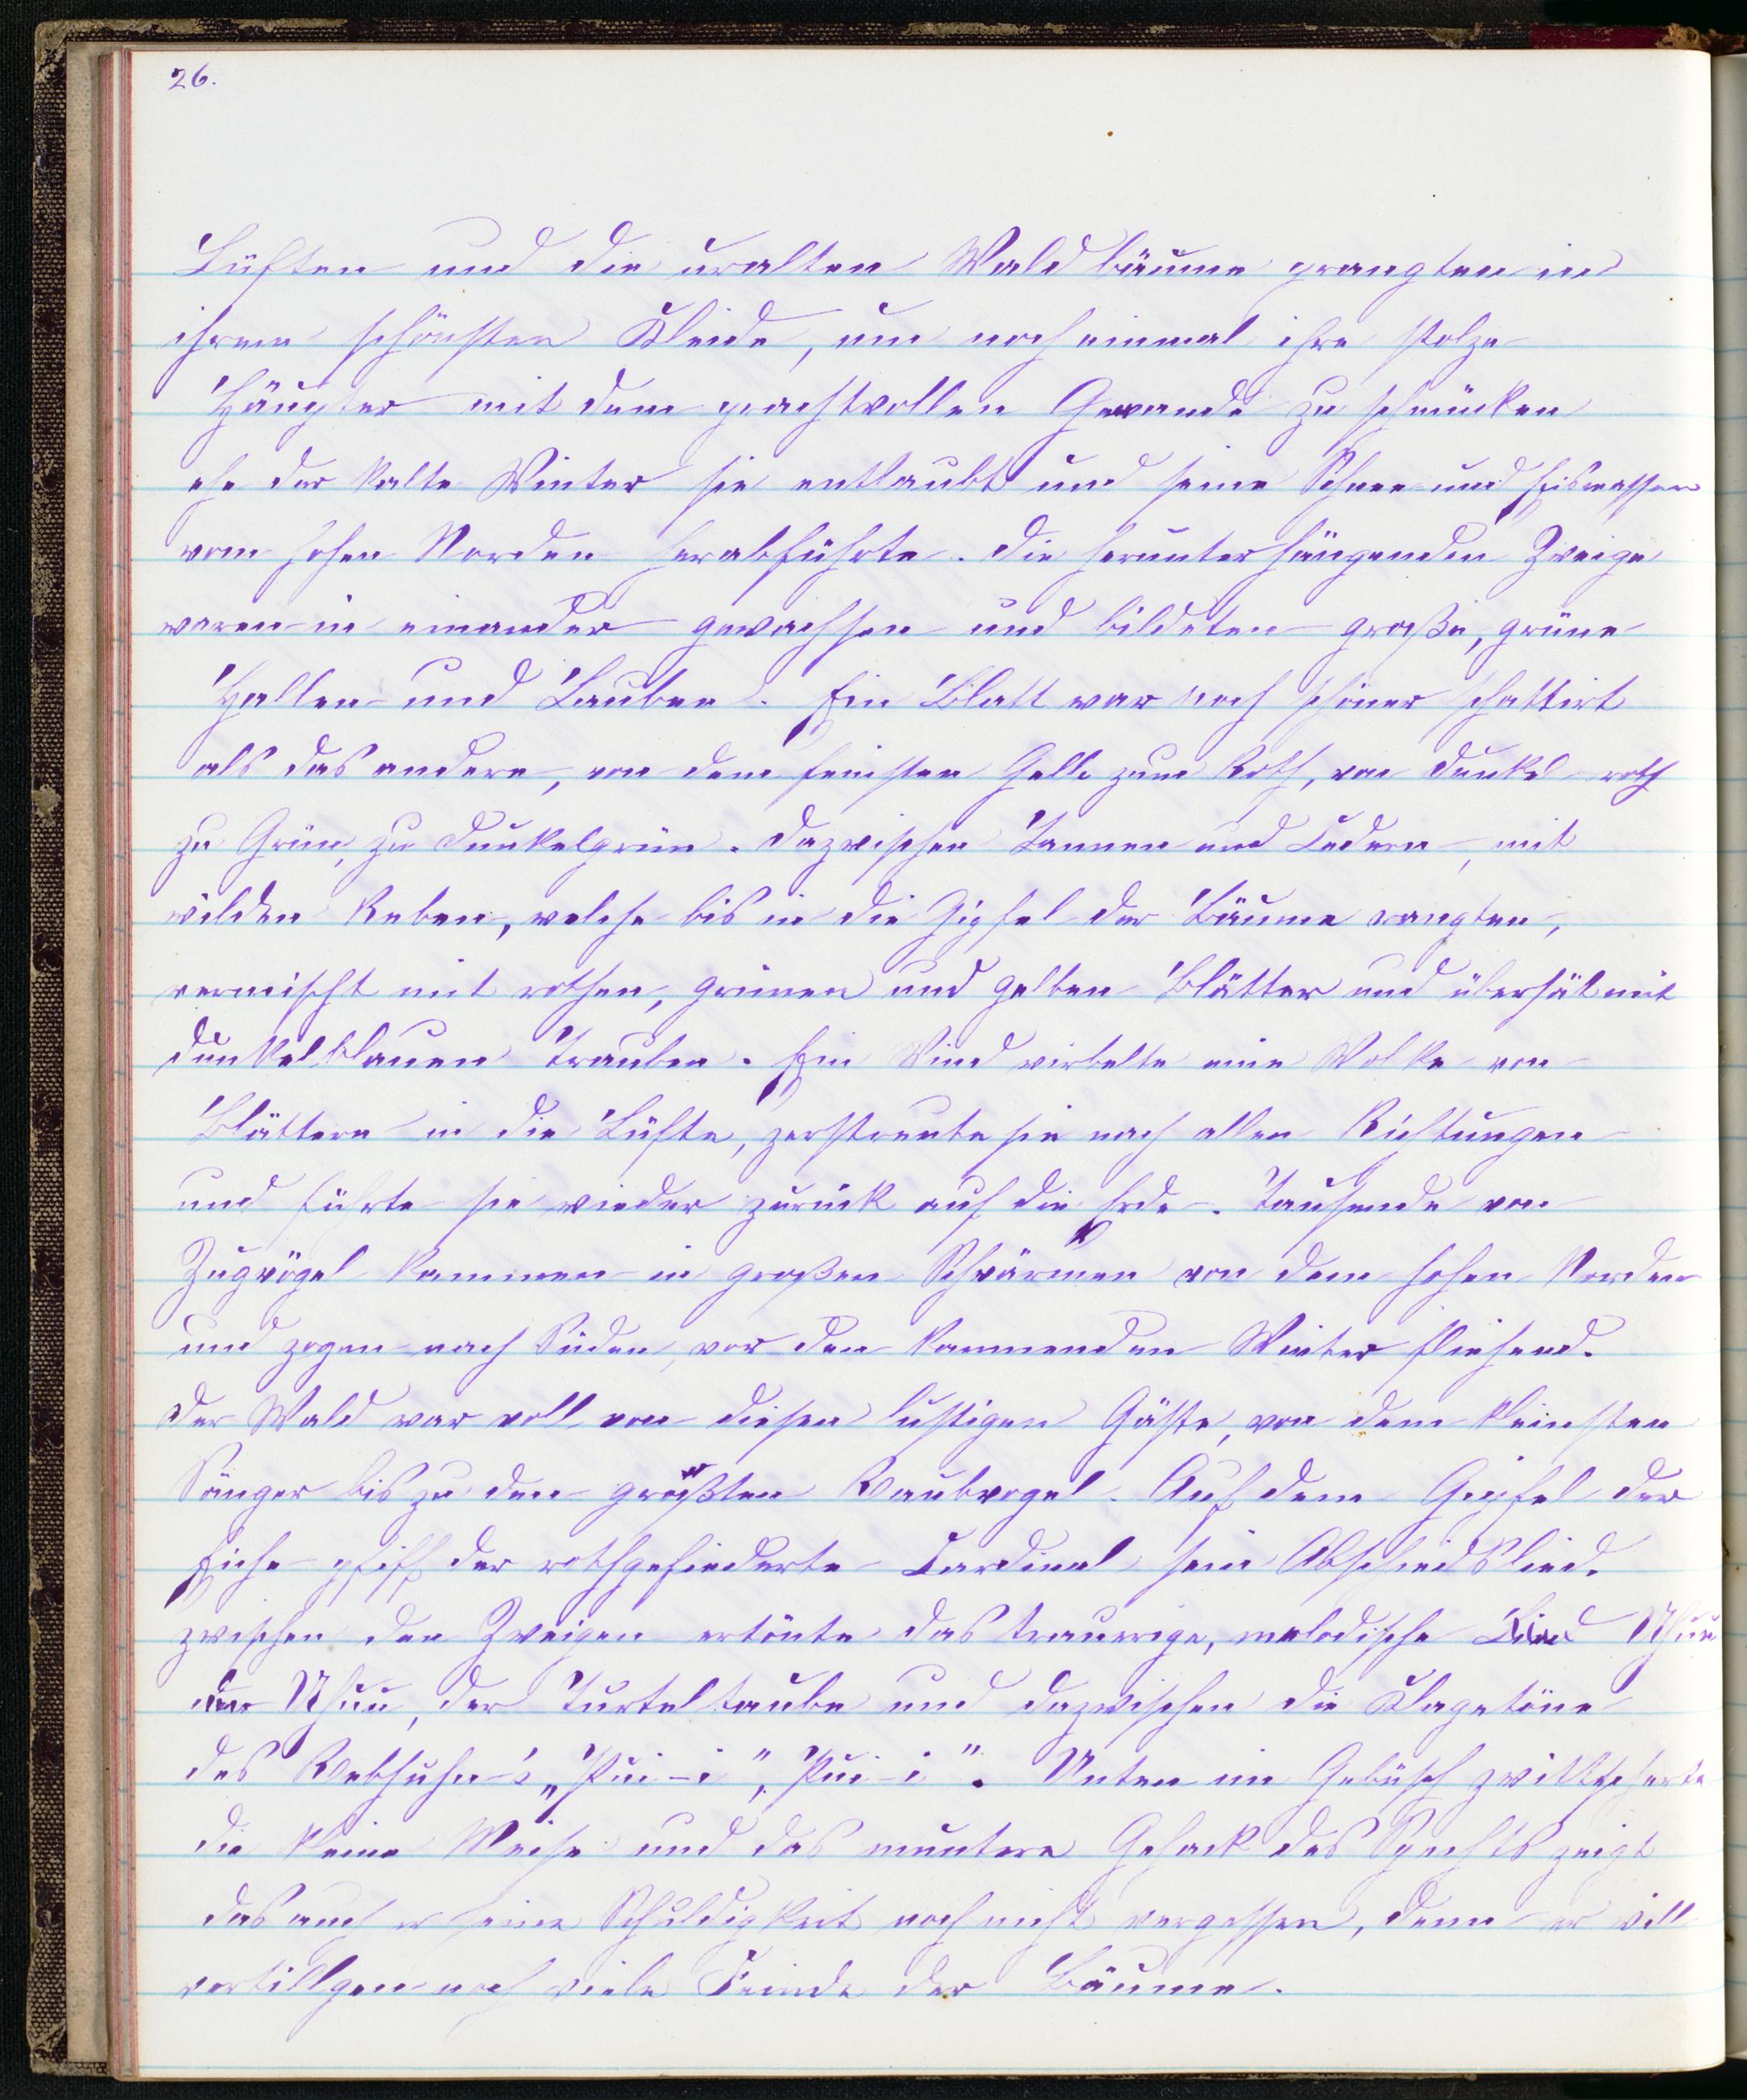 26.
Lüften und die uralten Waldbäume prangten in
ihrem schönsten Kleide, um noch einmal ihre stolze
Häupter mit dem prachtvollen Gewande zu schmücken
ehe der kalte Winter sie entlaubt und seine Schnee und Eismassen
vom hohen Norden herabführte. Die herunterhängenden Zweige
waren in einander gewachsen und bildeten große, grüne
Hallen und Lauben. Ein Blatt war noch schöner schattirt
als das andere, von dem feinsten Gelb zum Roth, von Dunkel roth
zu Grün, zu Dunkelgrün. Dazwischen Tannen und Cedern, mit
wilden Reben, welche bis in die Gipfel der Bäume rangten,
vermischt mit rothen, grünen und gelben Blätter und übersät mit
dunkelblauen Trauben. Ein Wind wirbelte eine Wolke von
Blättern in die Lüfte, zerstreute sie nach allen Richtungen
und führte sie wieder zurück auf die Erde. Tausende von
Zugvögel kammen in großen Schwärmen von dem hohen Norden
und zogen nach Süden, vor den kommenden Winter fliehend.
Der Wald war voll von diesen lustigen Gäste, von dem kleinsten
Sänger bis zu den größten Raubvogel. Auf dem Gipfel der
Eiche pfiff der rothgefiederte Cardinal sein Abschiedslied.
zwischen den Zweigen ertönte das trauerige, melodische Lied Uhuu
der Uhuu, der Turteltaube und dazwischen die Klagetöne
des Rebhuhn's „Pui-i", „Pui-i". Unten im Gebüsch zwittscherte
die kleine Meise und das muntere Gehack des Spechts zeigt
das auch er seine Schuldigkeit noch nicht vergessen, denn er will
vertillgen noch viele Feinde der Bäume.